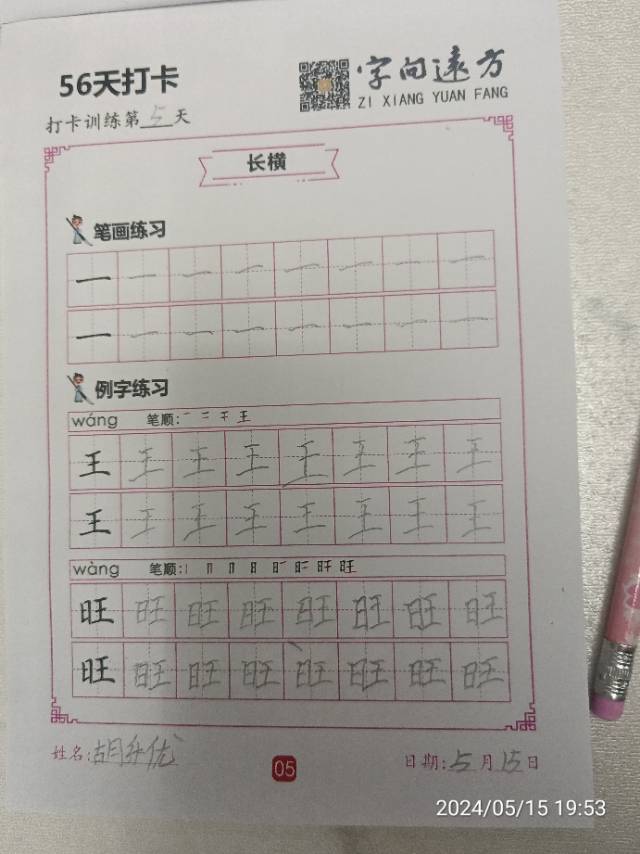 56天打卡
字向遠方
ZI XIANG YUAN FANG
打卡训练第5天
长横
笔画练习
一 一 一 一 一 一 一 一
一 一 一 一 一 一 一 一
例字练习
wáng 笔顺: 一 二 干 王
王 王 王 王 王 王 王 王
王 王 王 王 王 王 王 王
wàng 笔顺: 丨 冂 日 旺
旺 旺 旺 旺 旺 旺 旺 旺
旺 旺 旺 旺 旺 旺 旺 旺
姓名:胡
05
日期:5月15日
2024/05/15 19:53